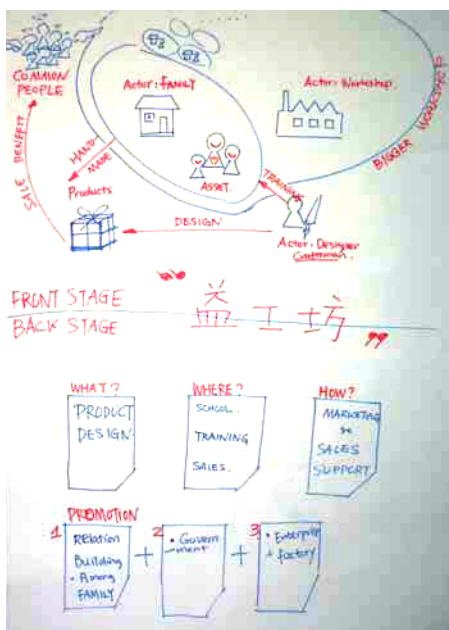 COMMON
PEOPLE
Actor: FAMILY
Actor: Workshop
BIGGER WORKSPACE
SALE BENEFIT
HAND
MADE
Products
ASSET.
TRAINING
DESIGN
Actor: Designer
Craftsman.
FRONT STAGE
BACK STAGE
“益工坊”
WHAT?
PRODUCT
DESIGN
WHERE?
SCHOOL.
TRAINING
SALES.
HOW?
MARKETING
&
SALES
SUPPORT
PROMOTION
1
Relation
Building
• Among
FAMILY
+
2
• Govern
ment
+
3
• Enterprise
+ factory